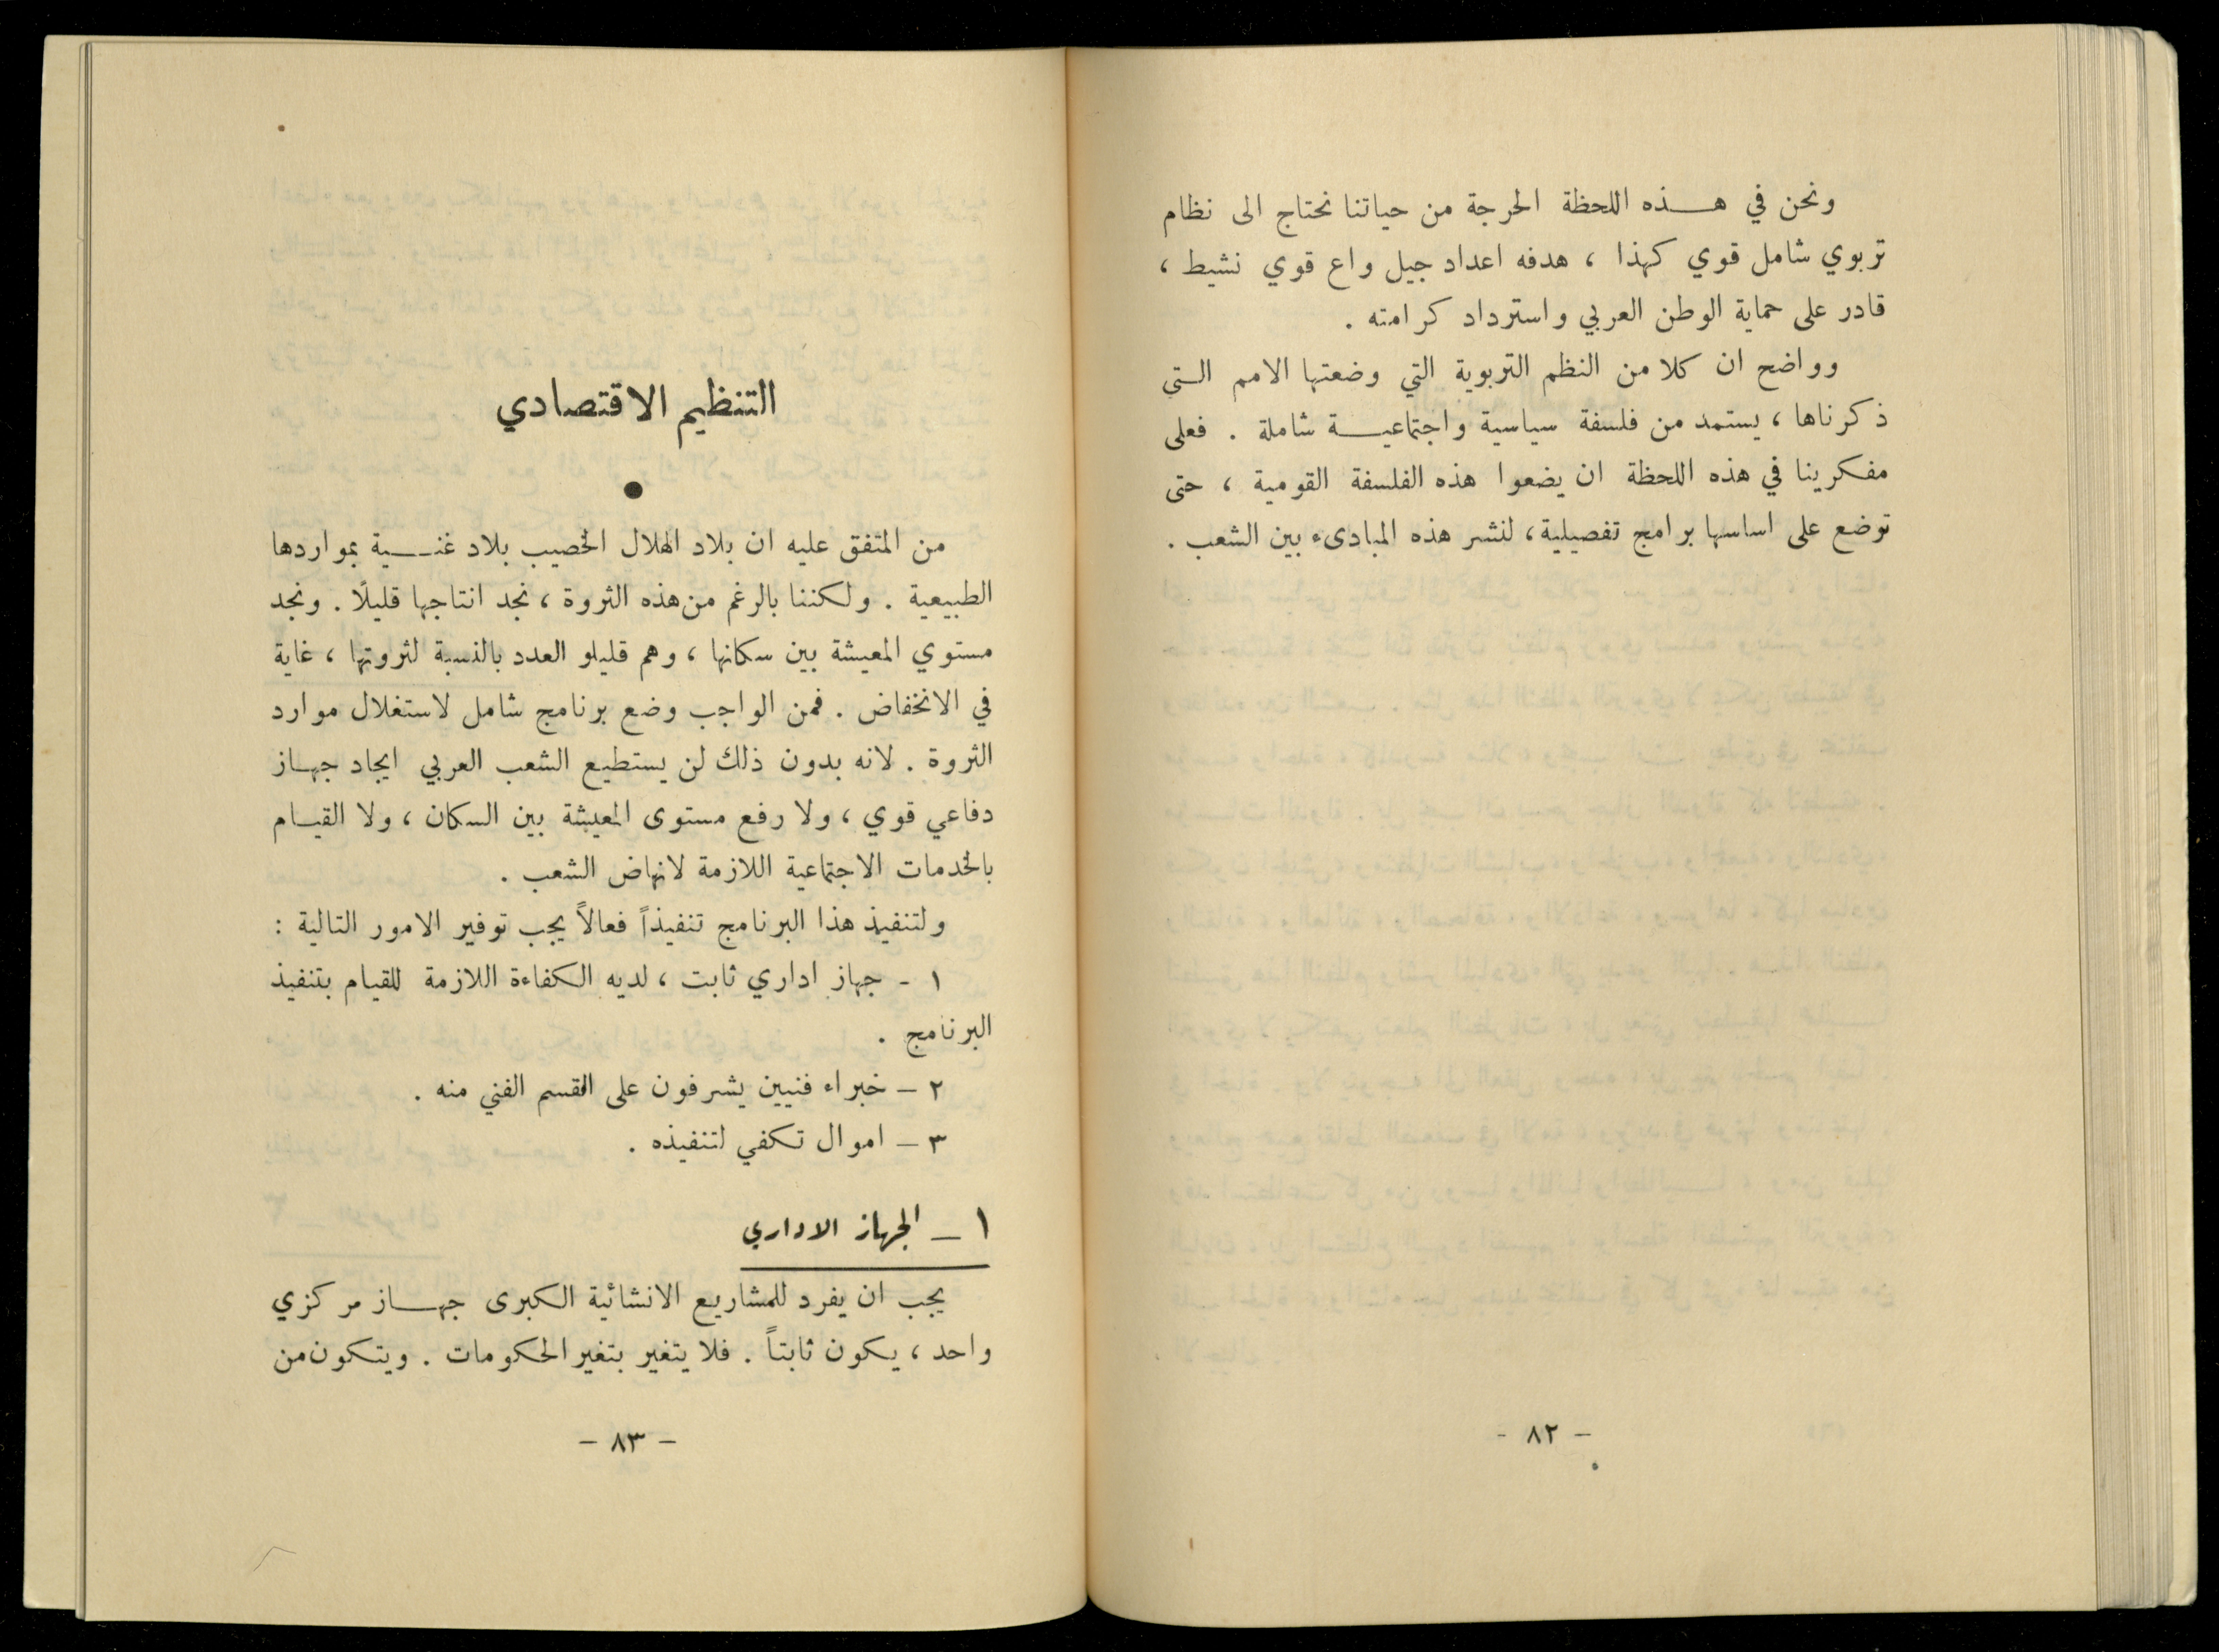 ونحن في هـــذه اللحظة الحرجة من حياتنا نحتاج الى نظام
تربوي شامل قوي كهذا ، هدفه اعداد جيل واع قوي نشيط ،
قادر على حماية الوطن العربي واسترداد كرامته .
وواضح ان كلا من النظم التربوية التي وضعتها الامم الـتي
ذكرناها ، يستمد من فلسفة سياسية واجتماعيــة شاملة . فعلى
مفكرينا في هذه اللحظة ان يضعوا هذه الفلسفة القومية ، حتى
توضع على اساسها برامج تفصيلية ، لنشر هذه المبادىء بين الشعب .
- ٨٢ -
التنظيم الاقتصادي
●
من المتفق عليه ان بلاد الهلال الخصيب بلاد غنــية بمواردها
الطبيعية . ولكننا بالرغم من هذه الثروة ، نجد انتاجها قليلًا . ونجد
مستوي المعيشة بين سكانها ، وهم قليلو العدد بالنسبة لثروتها ، غاية
في الانخفاض . فمن الواجب وضع برنامج شامل لاستغلال موارد
الثروة . لانه بدون ذلك لن يستطيع الشعب العربي ايجاد جهــاز
دفاعي قوي ، ولا رفع مستوى المعيشة بين السكان ، ولا القيــام
بالخدمات الاجتماعية اللازمة لانهاض الشعب .
ولتنفيذ هذا البرنامج تنفيذاً فعالاً يجب توفير الامور التالية :
١ - جهاز اداري ثابت ، لديه الكفاءة اللازمة للقيام بتنفيذ
البرنامج .
٢ – خبراء فنيين يشرفون على القسم الفني منه .
٣ – اموال تكفي لتنفيذه .
١ – الجهاز الاداري
يجب ان يفرد للمشاريع الانشائية الكبرى جهـــاز مركزي
واحد ، يكون ثابتاً . فلا يتغير بتغير الحكومات . ويتكون من
- ٨٣ -